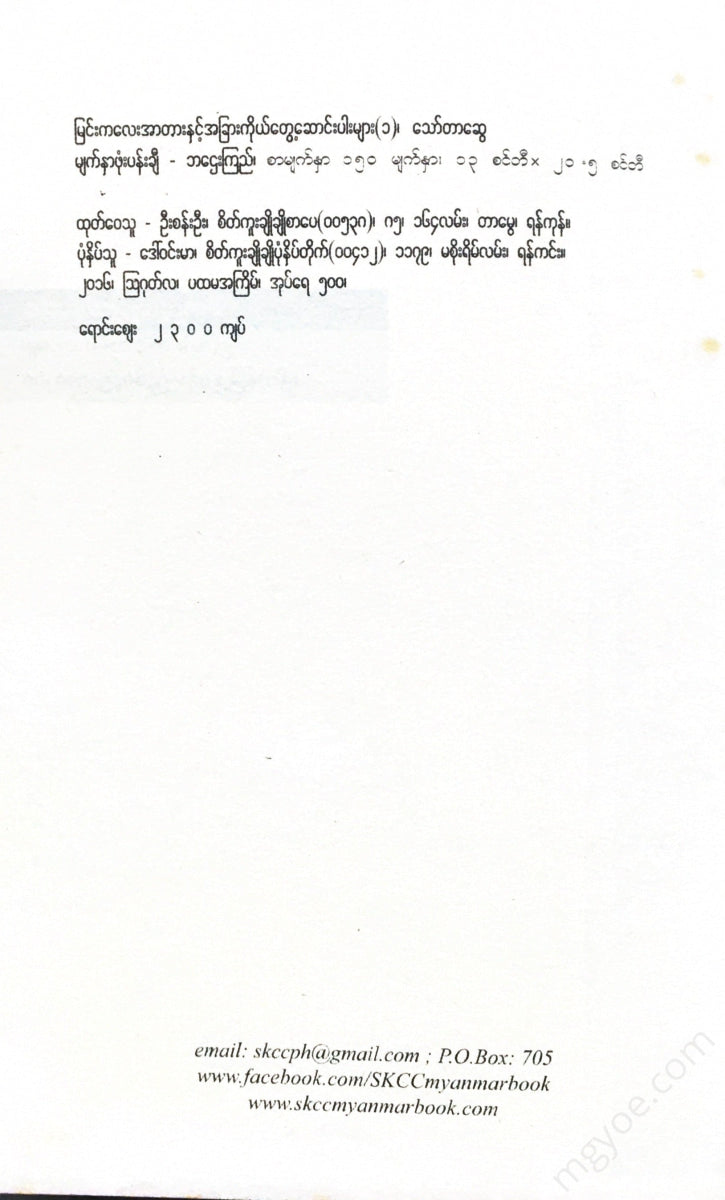 မြင်းကလေးအာတားနှင့်အခြားကိုယ်တွေ့ဆောင်းပါးများ(၁)၊ သော်တာဆွေ
မျက်နှာဖုံးပန်းချီ - ဘဌေးကြည်၊ စာမျက်နှာ ၁၅၀ မျက်နှာ၊ ၁၃ စင်တီ× ၂၁ ·၅ စင်တီ
ထုတ်ဝေသူ - ဦးစန်းဦး၊ စိတ်ကူးချိုချိုစာပေ(၀၀၅၃၈)၊ ဂ၅၊ ၁၆၄လမ်း၊ တာမွေ၊ ရန်ကုန်။
ပုံနှိပ်သူ - ဒေါ်ဝင်းမာ၊ စိတ်ကူးချိုချိုပုံနှိပ်တိုက်(၀၀၄၁၂)၊ ၁၁၇၉၊ မစိုးရိမ်လမ်း၊ ရန်ကင်း။
၂၀၁၆၊ ဩဂုတ်လ၊ ပထမအကြိမ်၊ အုပ်ရေ ၅၀၀၊
ရောင်းဈေး ၂ ၃ ၀ ၀ ကျပ်
email: skccph@gmail.com ; P.O.Box: 705
www.facebook.com/SKCCmyanmarbook
www.skccmyanmarbook.com
mgyoe.com